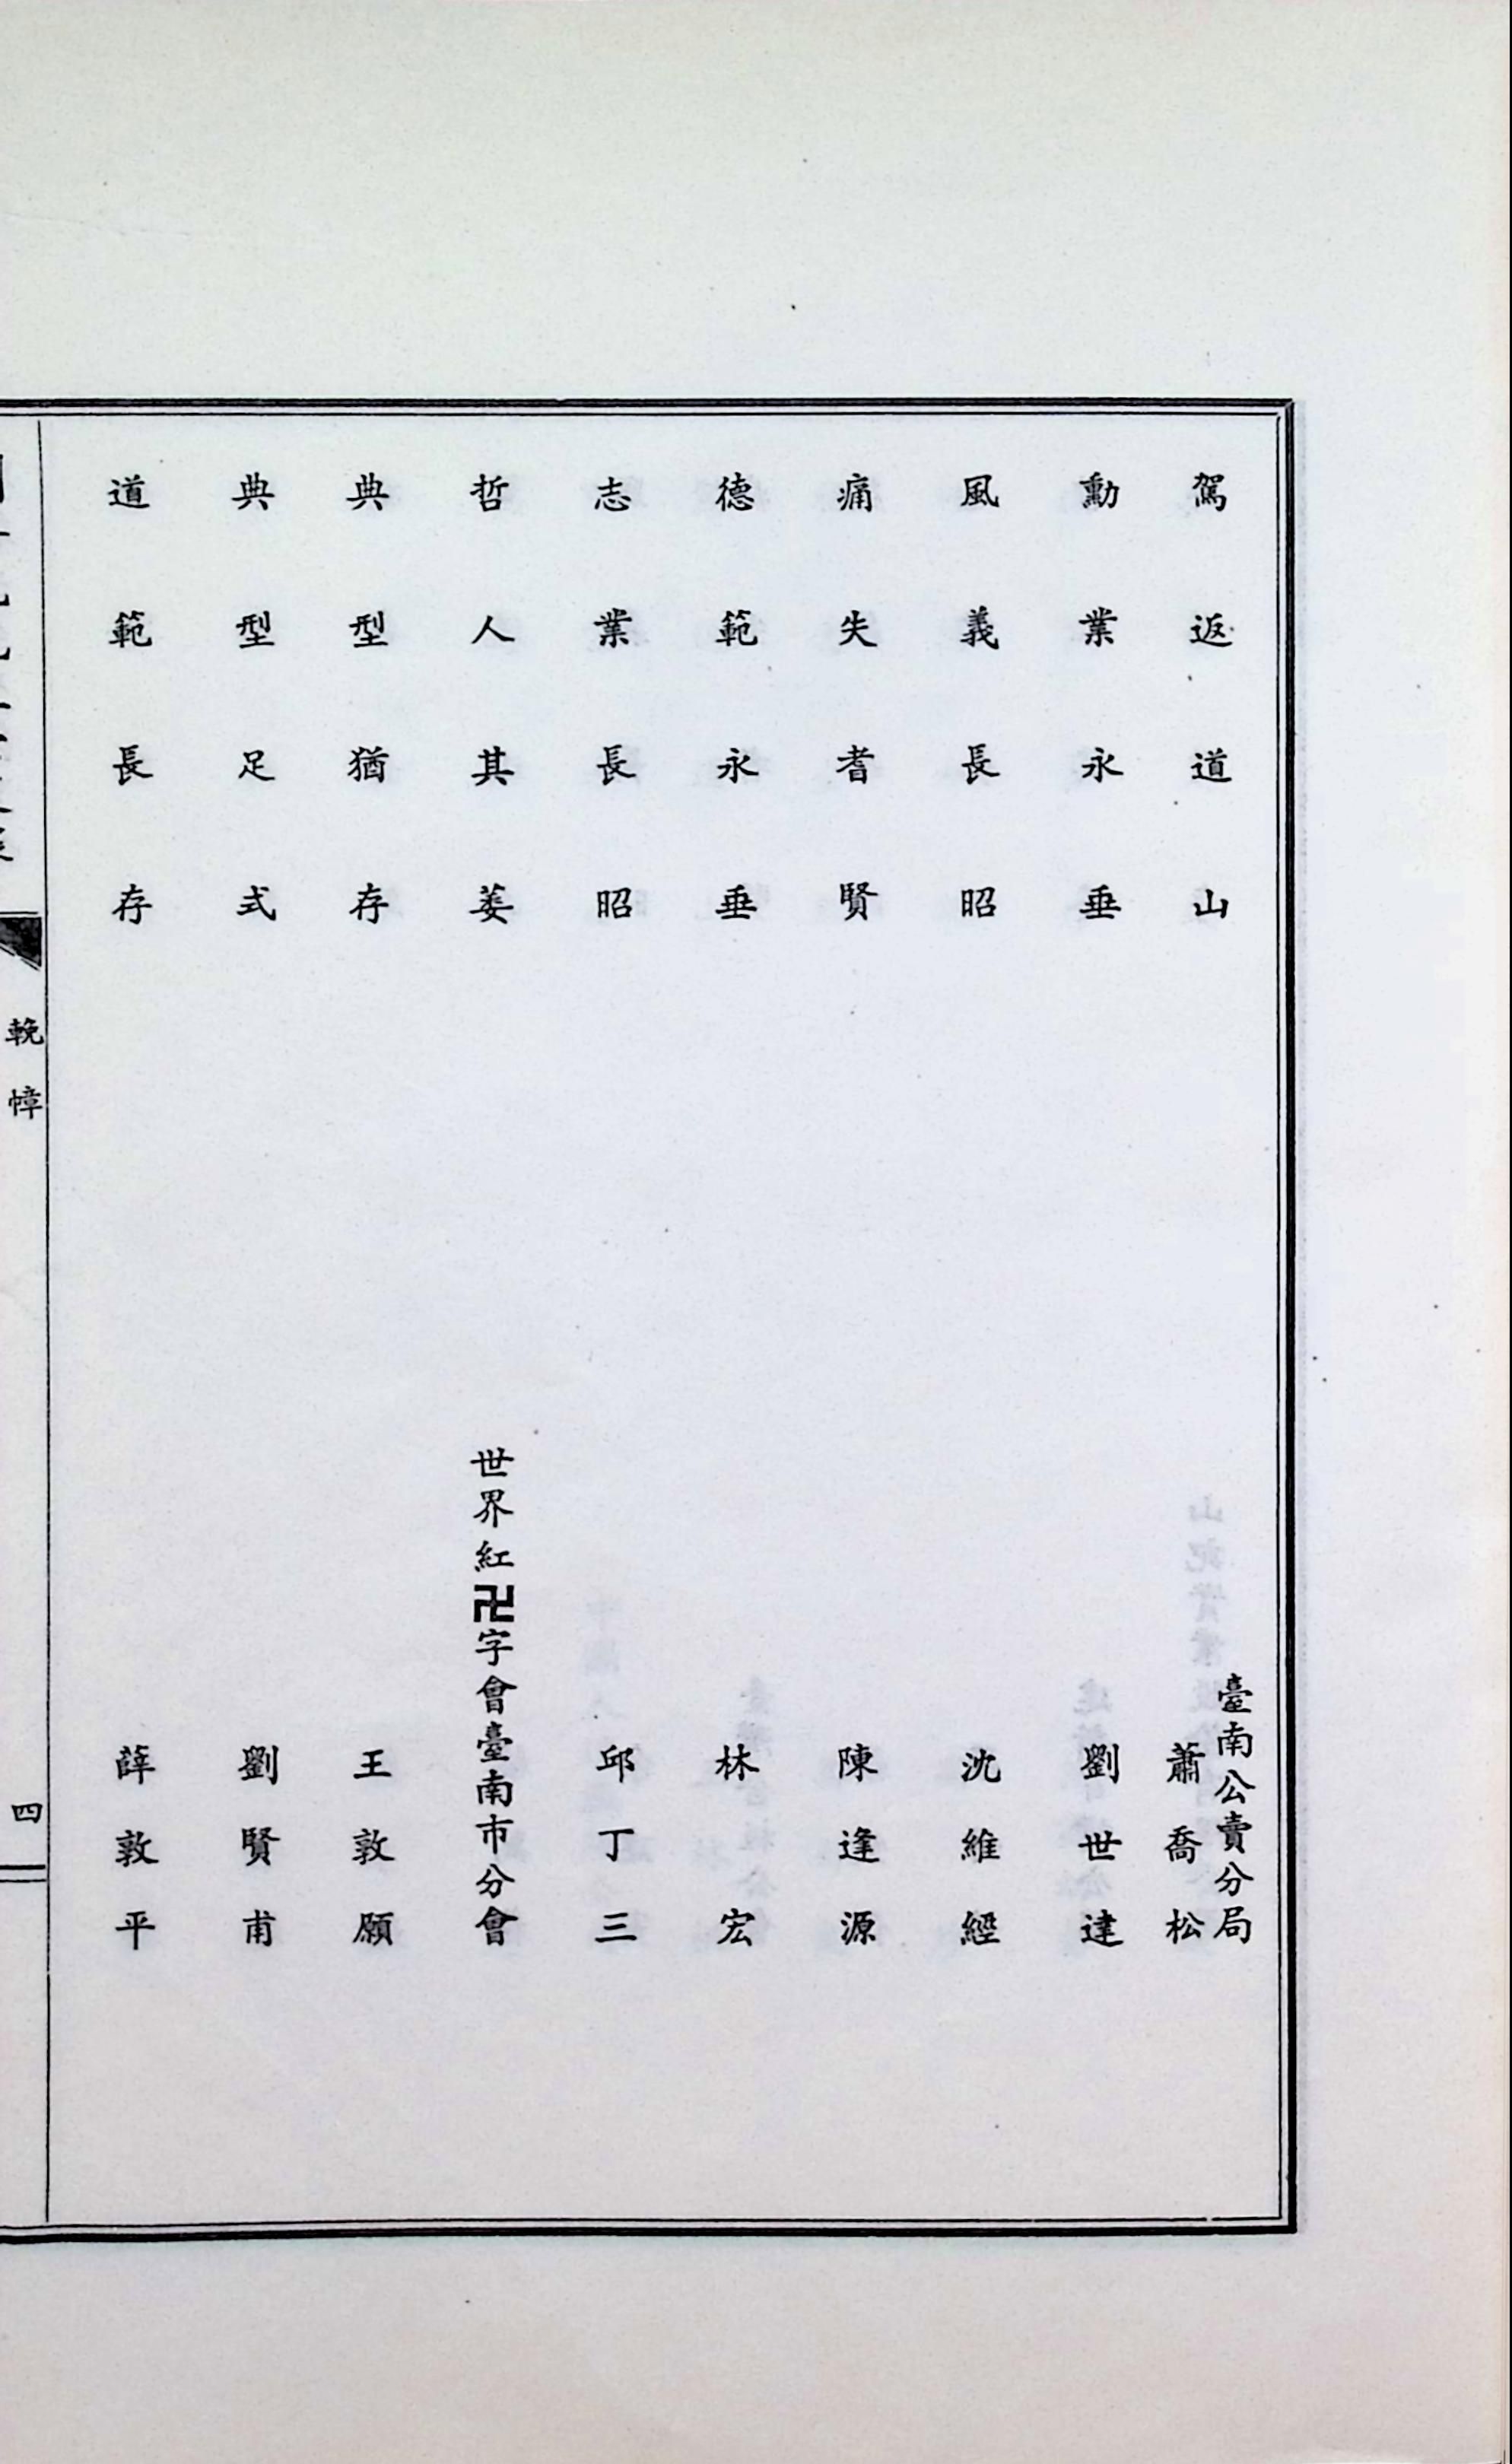 駕返道山
臺南公賣分局
蕭喬松
勳業永垂
劉世達
風義長昭
沈維經
痛失耆賢
陳逢源
德範永垂
林宏
志業長昭
邱丁三
哲人其萎
世界紅卍字會臺南市分會
典型猶存
王敦願
典型足式
劉賢甫
道範長存
薛敦平
輓幛
四